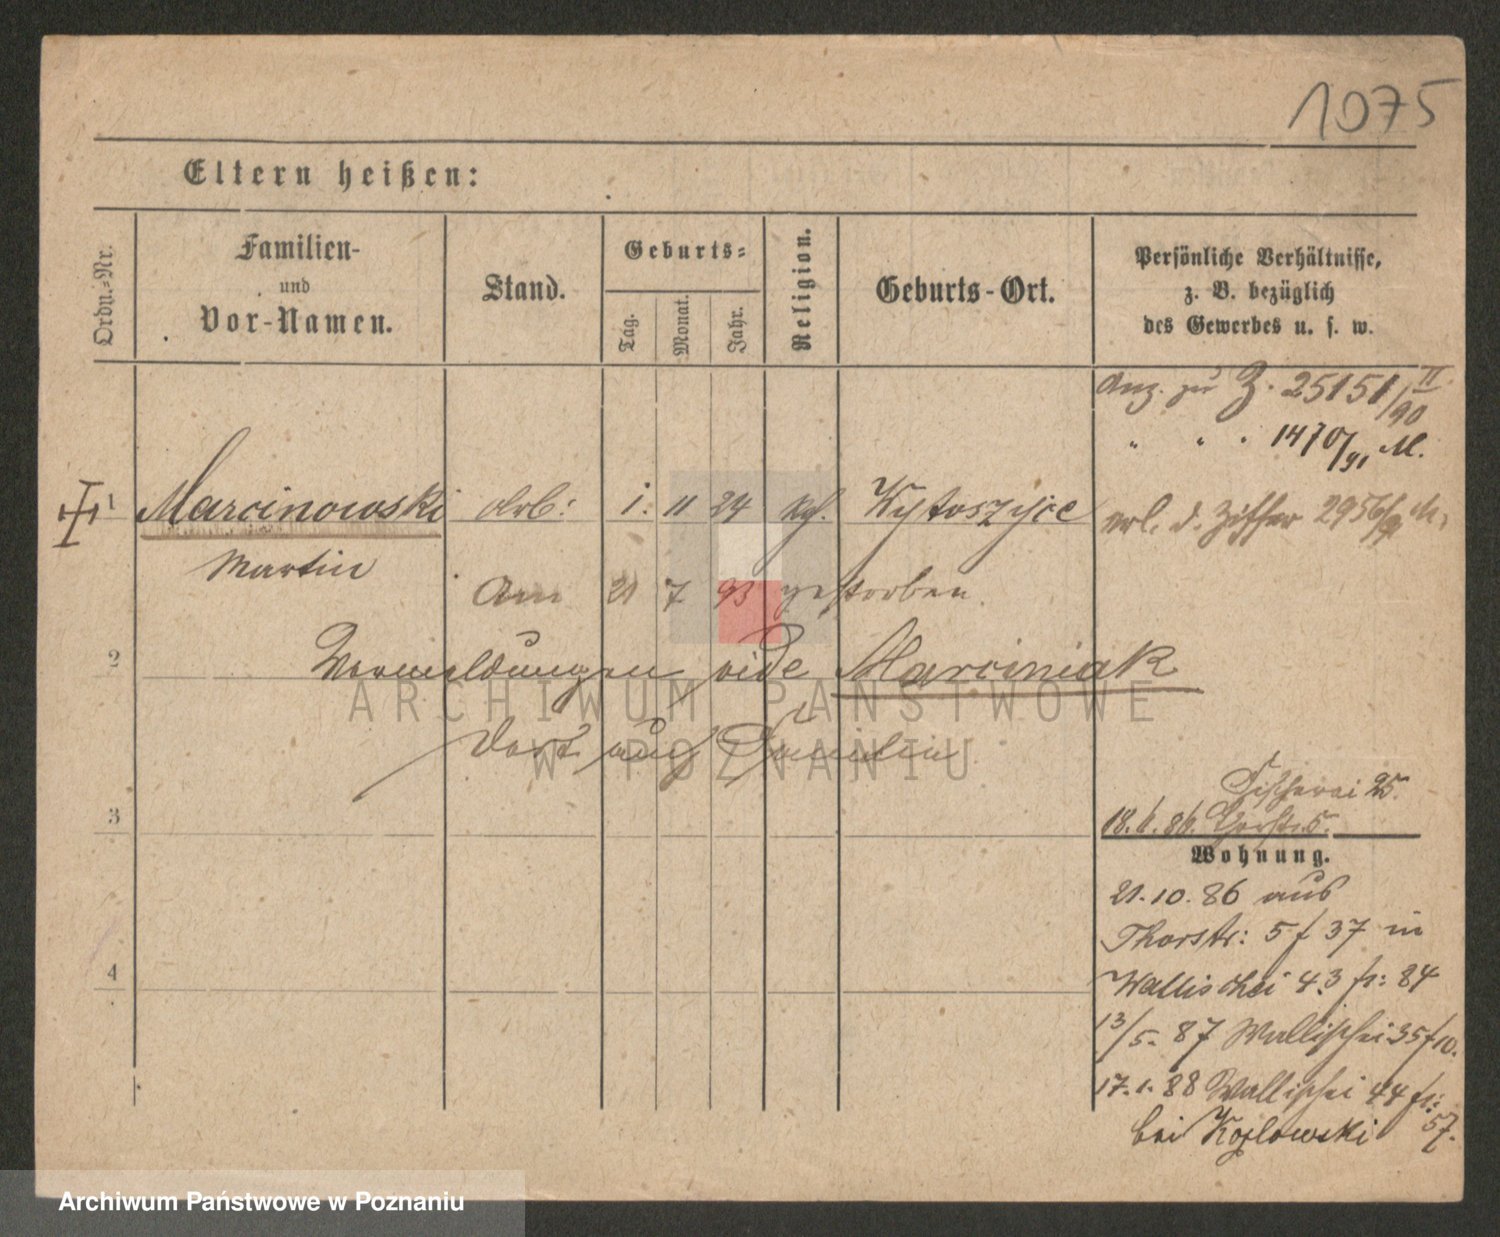 1075
Eltern heißen:
Ordn.-Nr.
Familien-
und
Vor-Namen.
Stand.
Geburts-
Tag.
Monat.
Jahr.
Religion.
Geburts-Ort.
Persönliche Verhältnisse,
z. B. bezüglich
des Gewerbes u. s. w.
Anz. zu Z. 25151/II 90
" " " 1470/91 M.
1 Marcinowski Arb: 1. 11 24 kg. Wytoszyce
erl. d. Ziffer
Martin
Am 21 7 93 gestorben.
2
vide Marciniak
Dort auch Familie
3
Fischerei 25.
18.6.86.
Wohnung.
21.10.86 aus
Thorstr: 5 f 37 in
4
Wallischei 43 fr: 84
13/5. 87 Wallischei 35 f 10.
17.1.88 Wallischei 44 fr: 57.
bei Kozlowski
ARCHIWUM PAŃSTWOWE
W POZNANIU
Archiwum Państwowe w Poznaniu